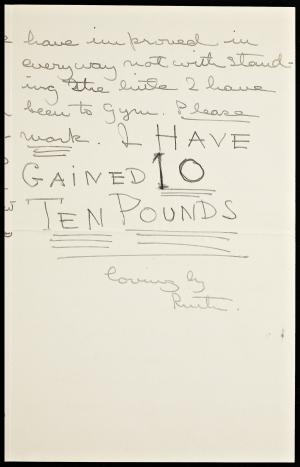 have improved in
every way not with stand-
ing the little I have
been to Gym. Please
work. I HAVE
GAINED 10
TEN POUNDS
loving ly
Ruth.